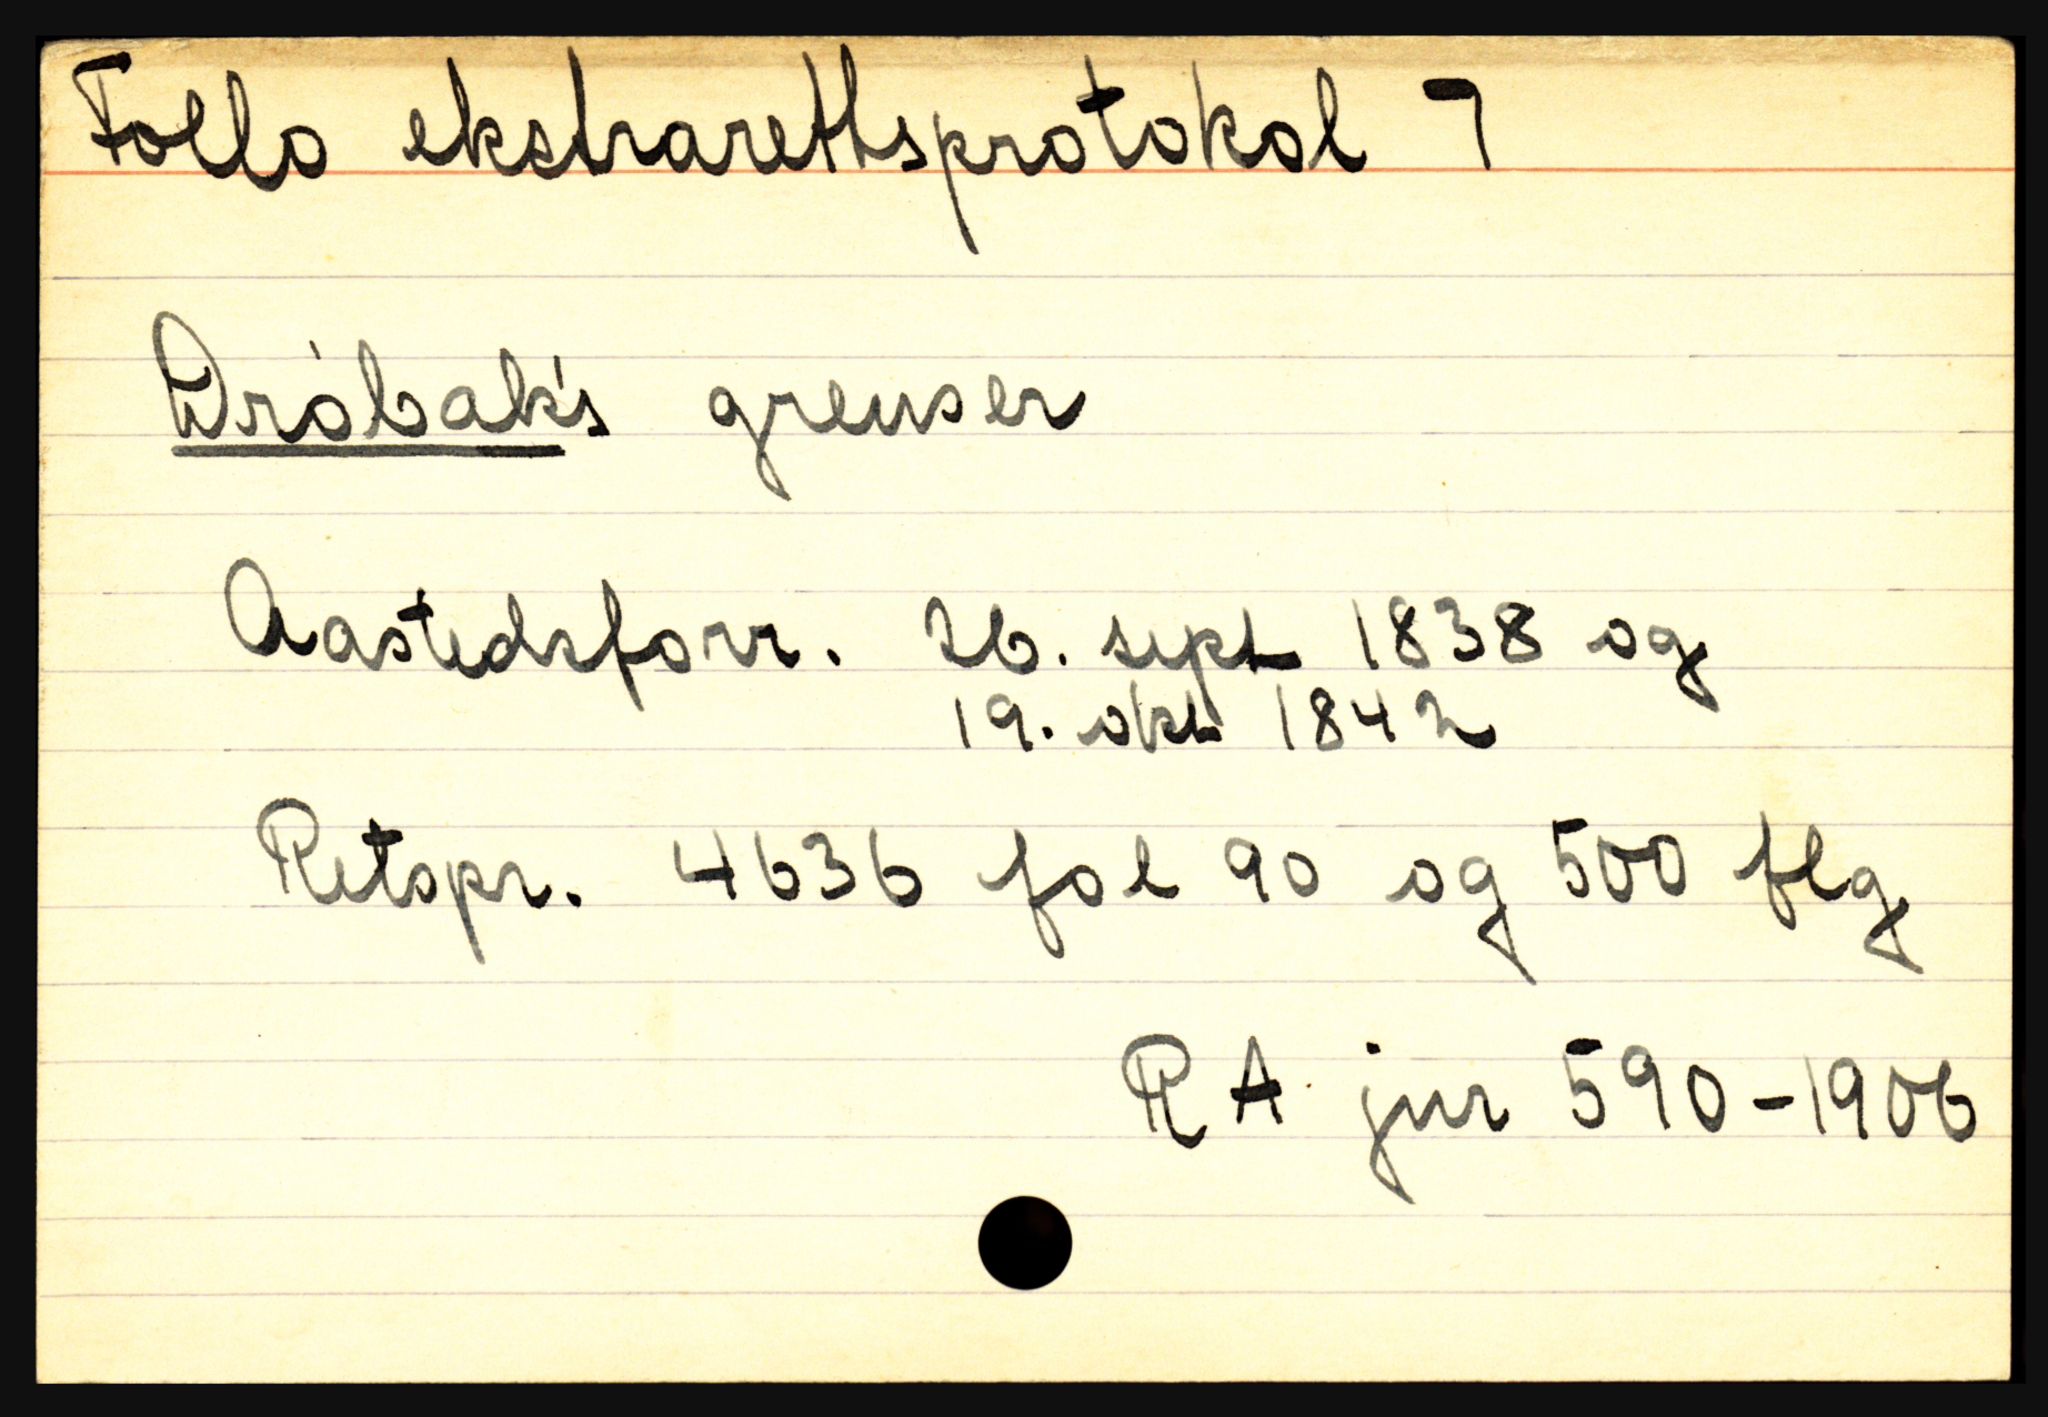 Follo ekstrarettsprotokol 7
Dróbak's grenser
Aastedsforr. 26. sept 1838 og
19. okt 1842
Retspr. 4636 fol 90 og 500 flg
RA jur 590-1906